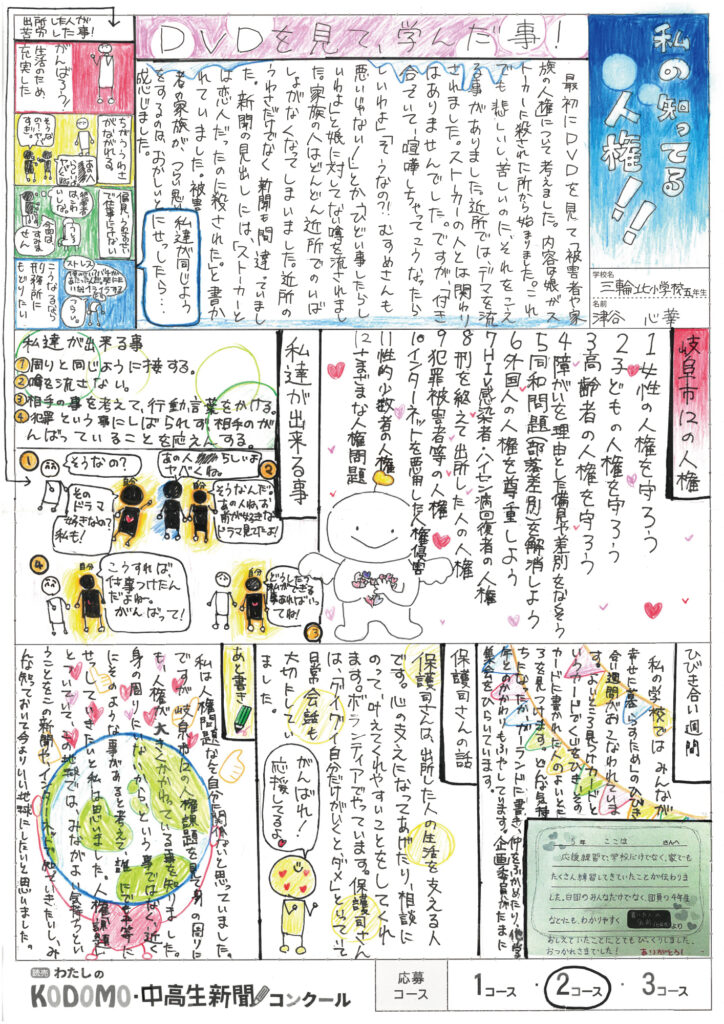 私の知ってる
人権!!
学校名
三輪北小学校 五年生
名前
津谷 心華
DVDを見て、学んだ事!
最初にDVDを見て「被害者や家
族の人権について考えました。内容は娘がス
トーカーに殺された所から始まりました。これ
でも悲しいし苦しいのに、それをこえ
る事がありました。近所ではデマを流
されました。ストーカーの人とは関わり
はありませんでした。ですが、「付き
合っていて、喧嘩しちゃってこうなったら
しいわよ」「そうなの?むすめさんも
悪いじゃない!」とか、「ひどい事したらし
いわよ」と娘に対してない噂を流されまし
た。家族の人はどんどん近所でのいば
しょがなくなてしまいました。近所の
うわさだけでなく新聞も間違っていまし
た。新聞の見出しには、「ストーカーと
は恋人だったのに殺された」と書か
れていました。被害
者の家族が、つらい思い
をするのは、おかしいと
感じました。
私達が同じよう
にせっしたら…
出所した人が
苦労した事!
がんばろう!
生活のため、
充実した
ちがううわさ
がながれる。
偏見のある方
で仕事につけない
今回は
すみま
せん
ストレス
こうなるなら
刑務所に
もどりたい
つらい。
岐阜市12の人権
1女性の人権を守ろう
2子どもの人権を守ろう
3高齢者の人権を守ろう
4障がいを理由とした偏見や差別をなくそう
5同和問題(部落差別)を解消しよう
6外国人の人権を尊重しよう
7HIV感染者・ハンセン病回復者の人権
8刑を終えて出所した人の人権
9犯罪被害者等の人権
10インターネットを悪用した人権侵害
11性的少数者の人権
12さまざまな人権問題
私達が出来る事
私達が出来る事
①周りと同じように接する。
②噂を流さない。
③相手の事を考えて、行動言葉をかける。
④犯罪という事にしばられず相手のが
んばっていることを応えんする。
①
そうなの?
その
ドラマ
好きなの?
私も!
②
あの人
らしいよ
ヤベくね。
そうなんだ。
あの人ね、お
前が好きな
ドラマ見てたよ!
③
自分
どうした?
私ができる
事あればいっ
てね!
④
自分
こうすれば、
仕事つけたん
だよねー。
がんばって!
ひびき合い週間
私の学校では、みんなが
幸せに暮らすためのひびき
合い週間がおこなわれていま
す。よいところ見つけカードと
いうカードでくじをひき、その
カードに書かれた人のよいとこ
ろを見つけます。
集会をひらいています。
5年 ここは さんへ
応援練習で、学校だけでなく、家でも
たくさん練習してきていたことが伝わりま
した。白団のみんなだけでなく、団員の4年生
などにも、わかりやすく
おしえていたことにとてもびっくりしました。
おつかれさまでした! ありがとう!
保護司さんの話
保護司さんは、出所した人の生活を支える人
です。心の支えになってあげたり、相談に
のって、叶えてくれやすいことをしてくれ
ます。ボランティアでやっています。保護司さん
は、「アイツ」「自分だけがいくとダメ」といって
日常会話も
大切にしてい
ました。
がんばれ!
応援してるよ
あと書き
私は人権問題なんて自分に関係ないと思っていました。
ですが岐阜市12の人権課題を見て身の周りに
も、人権が大きくかかわっている事を知りました。
身の周りにいないから、という事ではなく、近く
にそのような事があると考えて、誰にでも平等
せっしていきたいと私は思いました。人権課題
とっていて、この地球では、みながよい気持ちとい
うことをこの新聞や、インターネットで知っていきたいし、み
んな知っておいて今よりいい地球にしたいと思いました。
読売 わたしの
KODOMO・中高生新聞コンクール
応募
コース
1コース・2コース・3コース